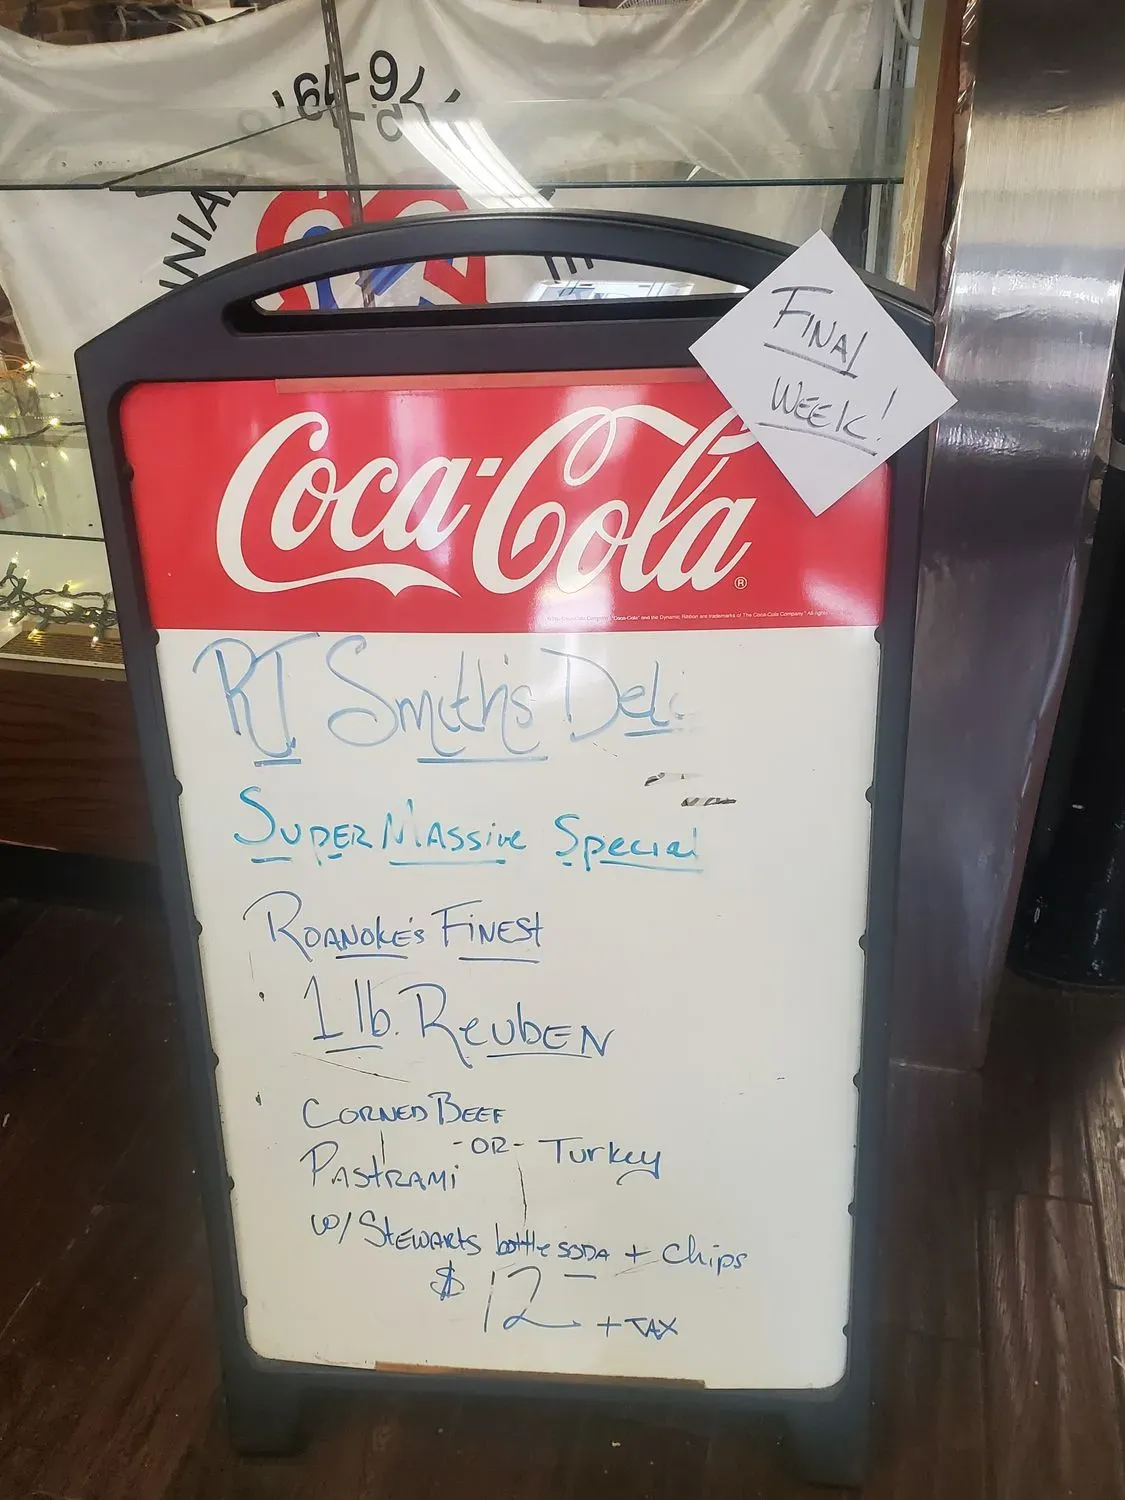 FINAL
WEEK!
Coca-Cola®
RJ Smith's Deli
SUPER MASSive Special
ROANOKE'S FINEST
1 lb. REUBEN
CORNED BEEF
-OR- Turkey
PASTRAMI
w/ STEWARTS bottle SODA + Chips
$ 12 – + TAX